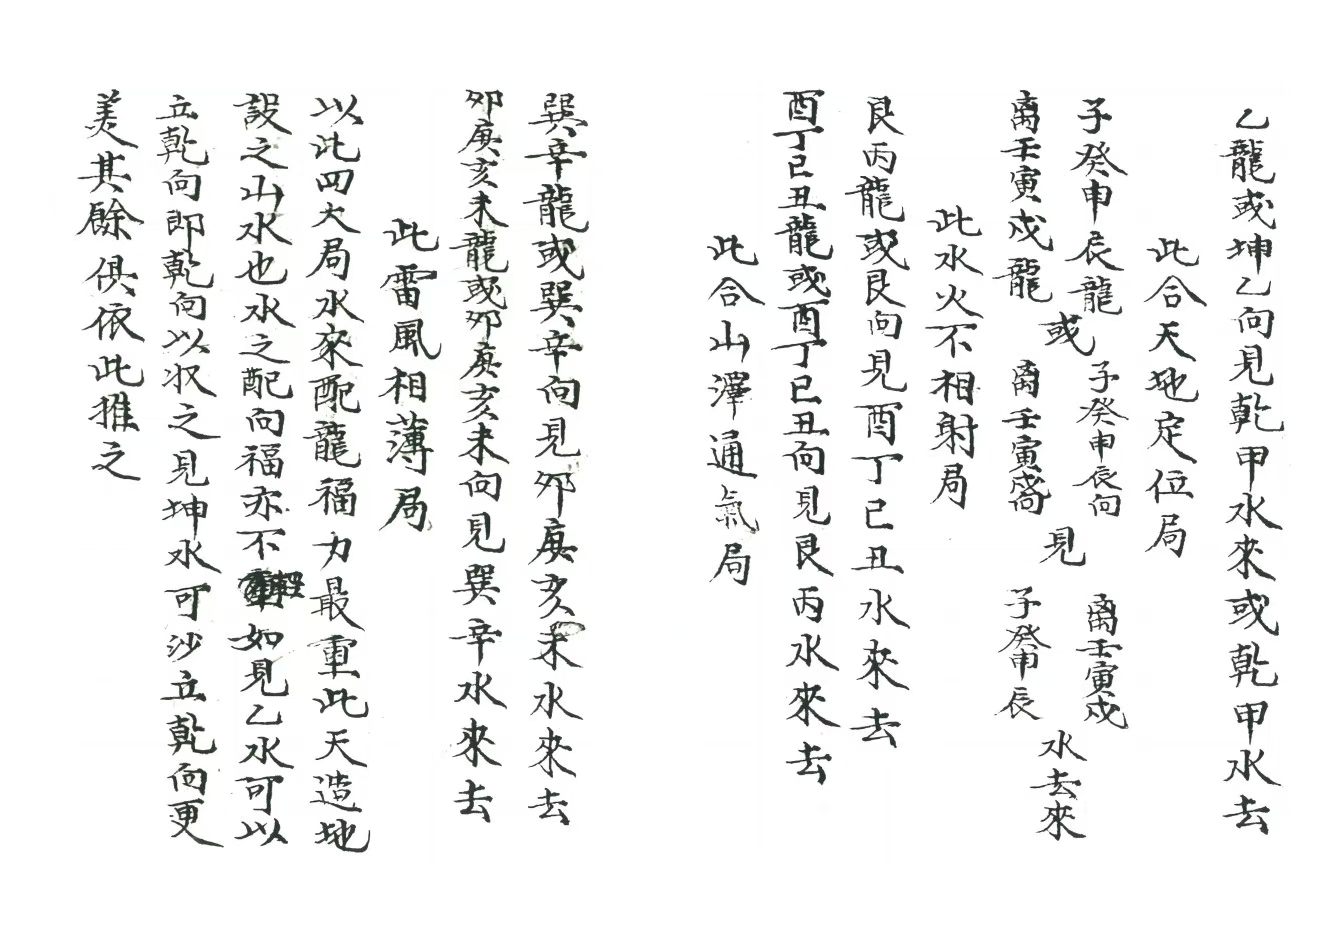 乙龍或坤乙向見乾甲水來或乾甲水去
此合天地定位局
子癸申辰龍
離壬寅戌龍
或
子癸申辰向
離壬寅戌向
見
離壬寅戌
子癸申辰
水去來
此水火不相射局
艮丙龍或艮向見酉丁巳丑水來去
酉丁巳丑龍或酉丁巳丑向見艮丙水來去
此合山澤通氣局
巽辛龍或巽辛向見卯庚亥未水來去
卯庚亥未龍或卯庚亥未向見巽辛水來去
此雷風相薄局
以此四大局水來配龍福力最重此天造地
設之山水也水之配向福亦不輕如見乙水可以
立乾向即乾向以收之見坤水可沙立乾向更
美其餘俱依此推之